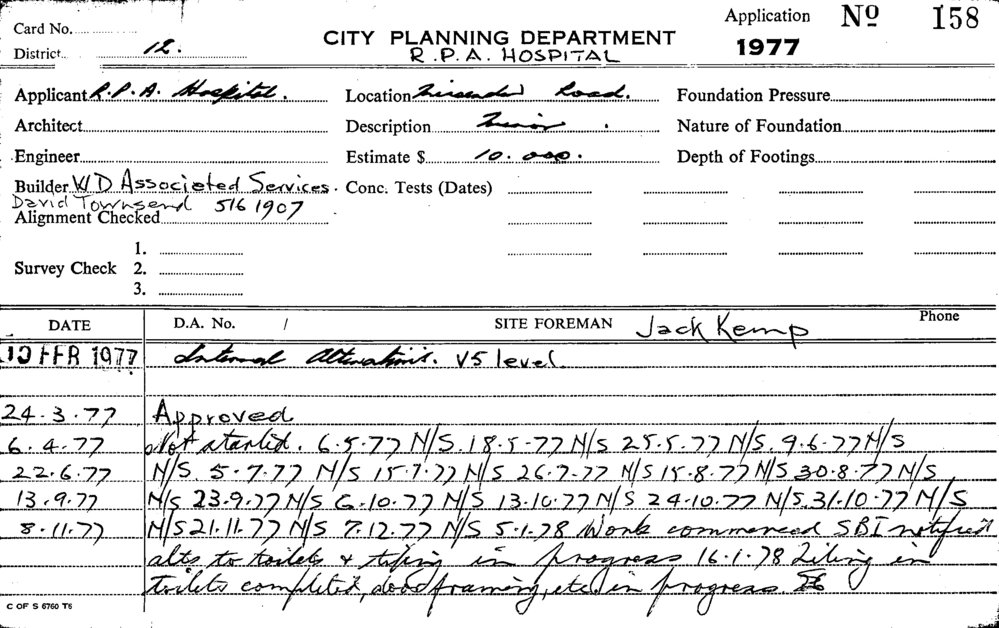 Card No. Application Nº 158
District 12. CITY PLANNING DEPARTMENT 1977
R.P.A. HOSPITAL
Applicant R.P.A. Hospital. Location Missenden Road. Foundation Pressure
Architect Description Minor . Nature of Foundation
Engineer Estimate $ 10.000. Depth of Footings
Builder W D Associated Services. Conc. Tests (Dates)
David Townsend 516 1907
Alignment Checked
1.
Survey Check 2.
3.
DATE D.A. No. / SITE FOREMAN Jack Kemp Phone
10 FEB 1977 Internal Alterations. V5 level.
24.3.77 Approved
6.4.77 Not started. 6.5.77 N/S. 18.5.77 N/S 25.5.77 N/S. 9.6.77 N/S
22.6.77 N/S. 5.7.77 N/S 15.7.77 N/S 26.7.77 N/S 15.8.77 N/S 30.8.77 N/S
13.9.77 N/S 23.9.77 N/S 6.10.77 N/S 13.10.77 N/S 24.10.77 N/S. 31.10.77 N/S
8.11.77 N/S 21.11.77 N/S 7.12.77 N/S 5.1.78 Work commenced SBI notified
alts to toilets & tiling in progress 16.1.78 Tiling in
toilets completed, door framing, etc. in progress.
C OF S 6760 T6